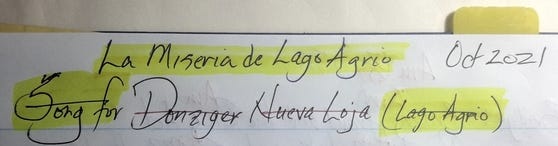 La Miseria de Lago Agrio Oct 2021
Song for Donziger Nueva Loja (Lago Agrio)